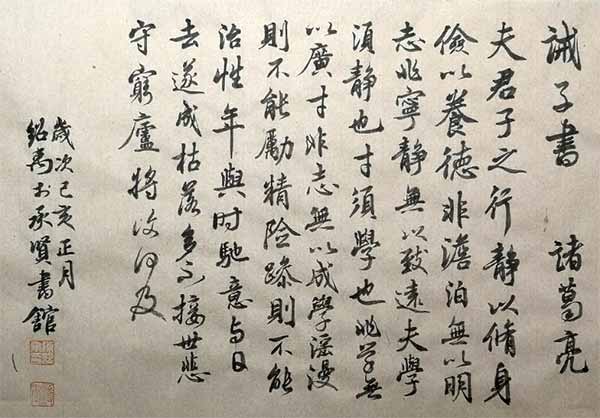 誡子書 諸葛亮
夫君子之行靜以脩身
儉以養德非澹泊無以明
志非寧静無以致遠夫學
須静也才須學也非学無
以廣才非志無以成學滛漫
則不能勵精險躁則不能
治性年與时馳意与日
去遂成枯落多不接世悲
守窮廬將復何及
歲次己亥正月
紹禹承賢書館